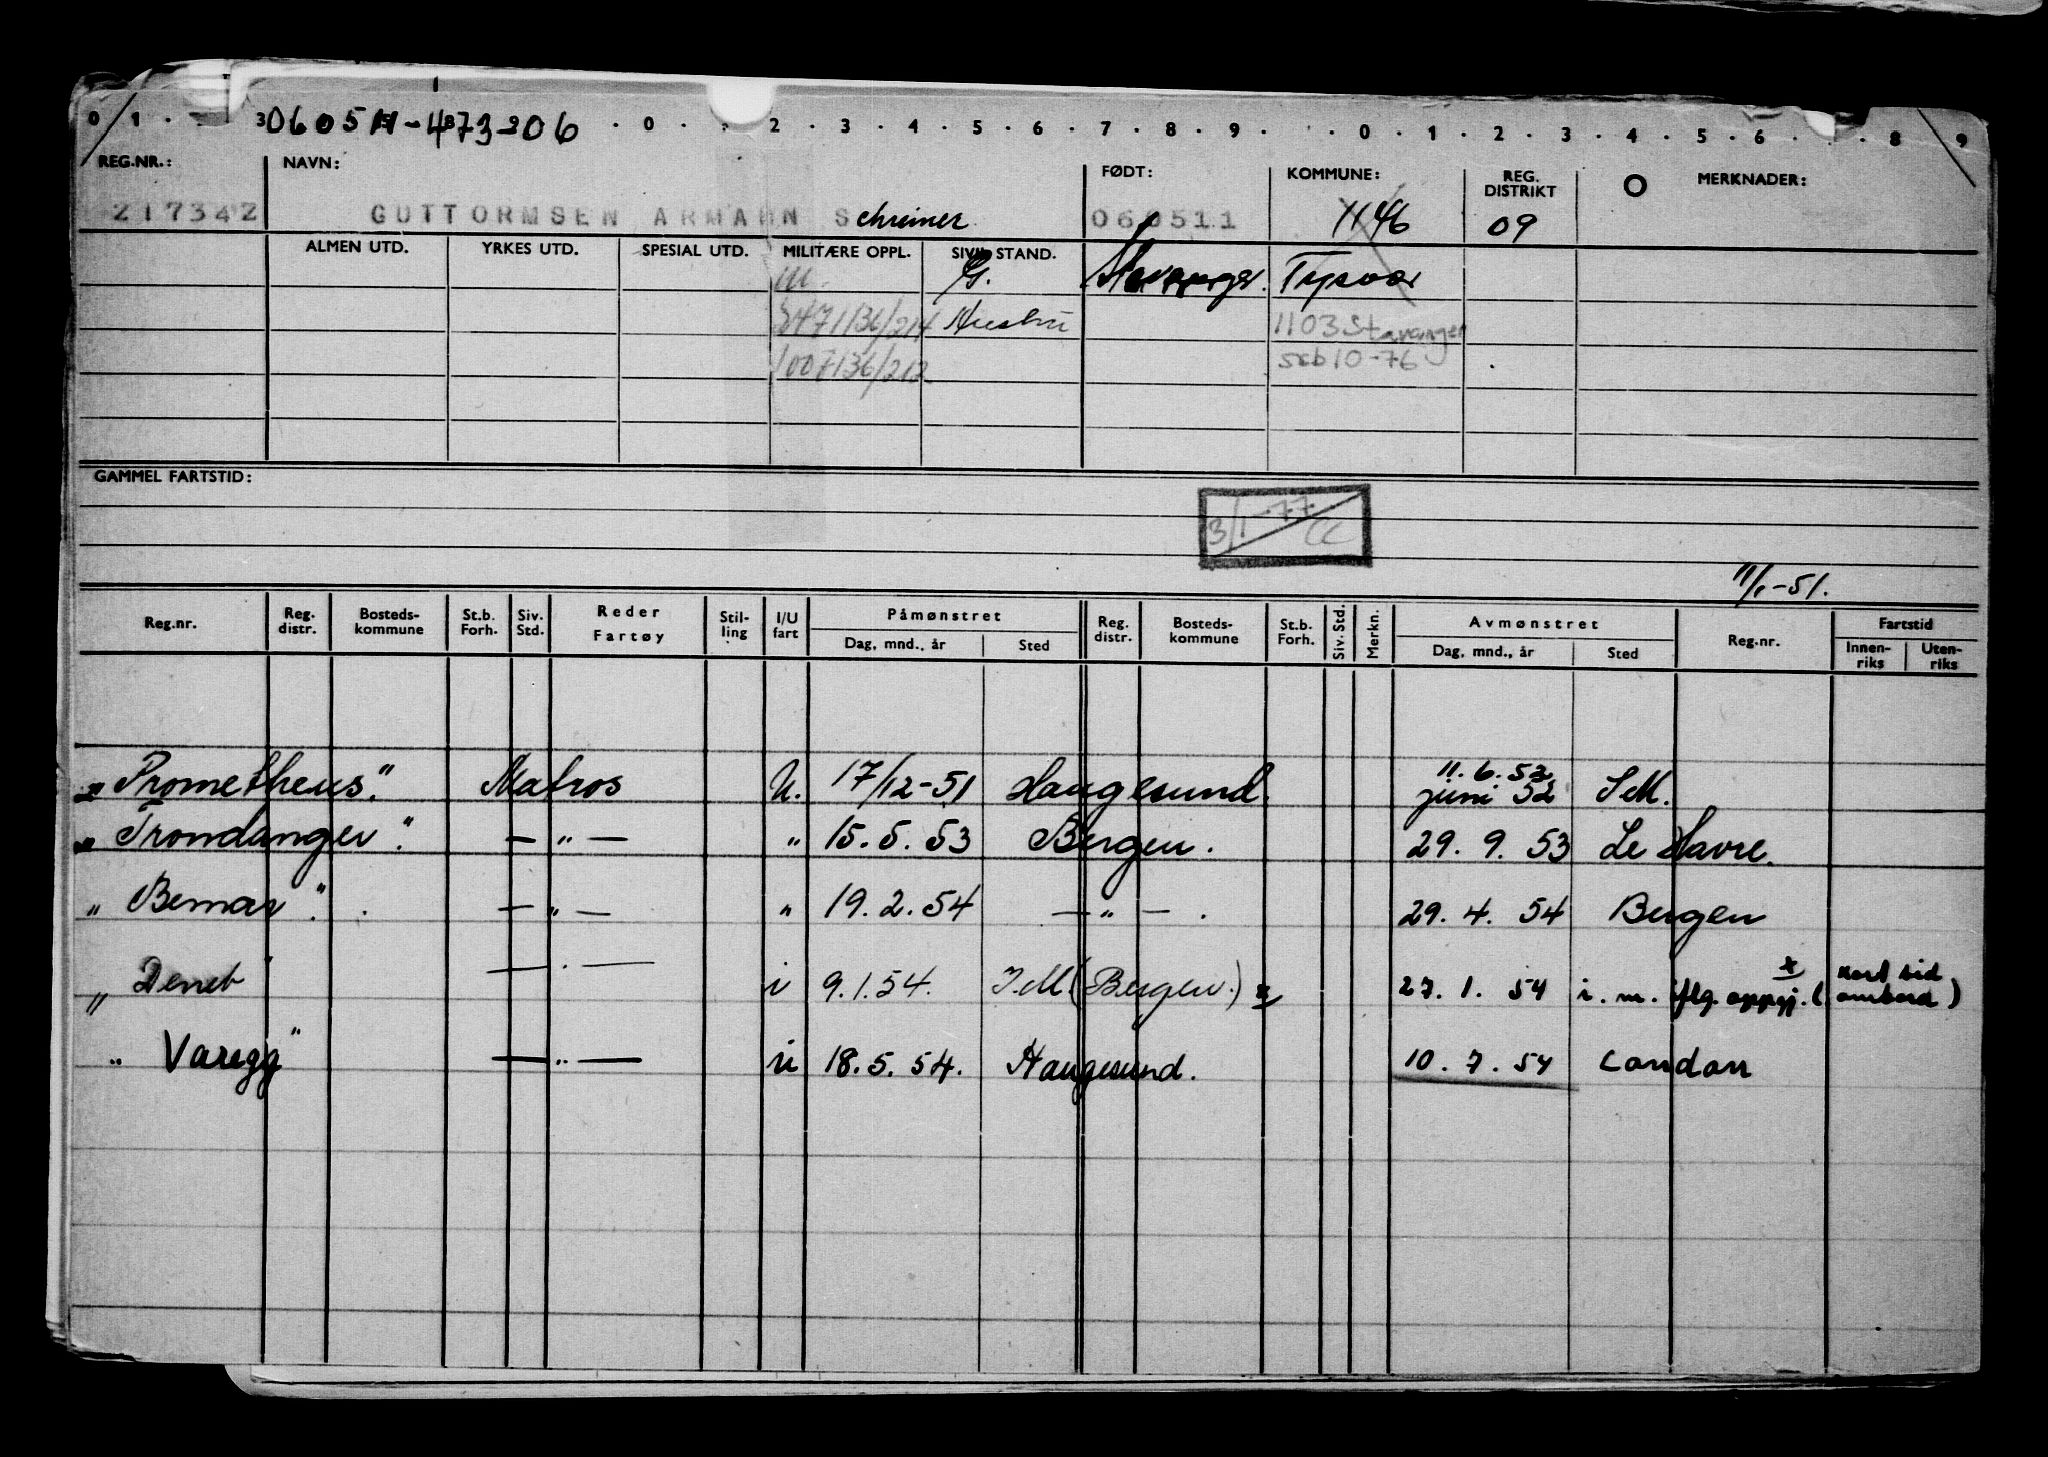 060511-47306
0 1 3 0 2 3 4 5 6 7 8 9 0 1 2 3 4 5 6 8 9
REG.NR.: NAVN: FØDT: KOMMUNE: REG. DISTRIKT O MERKNADER:
217342 GUTTORMSEN ARMANN Schreiner 060511 1146 09
ALMEN UTD. YRKES UTD. SPESIAL UTD. MILITÆRE OPPL. SIVIL STAND.
M. G. Stavanger. Tysvær
8471136/214 Hustru 1103 Stavanger
1007136/212 10-76
GAMMEL FARTSTID:
3/1-77
11/1-51.
Reg.nr. Reg. distr. Bosteds-kommune St.b. Forh. Siv. Std. Reder Fartøy Stil-ling I/U fart Påmønstret Reg. distr. Bosteds-kommune St.b. Forh. Siv. Std. Merkn. Avmønstret Reg.nr. Fartstid
Dag, mnd., år Sted Dag, mnd., år Sted Innen-riks Uten-riks
11.6.52
„ Prometheus". Matros U. 17/12-51 Haugesund. juni 52 I.M.
„ Trondanger". — „ — „ 15.5.53 Bergen. 29.9.53 Le Havre.
„ Bemar". — „ — „ 19.2.54 — „ — . 29.4.54 Bergen
„ Deneb" — „ — i 9.1.54. I.M (Bergen.) x 27.1.54 i.m. iflg. oppgj. x (kort tid ombord)
„ Varegg" — „ — u 18.5.54. Haugesund. 10.7.54 London